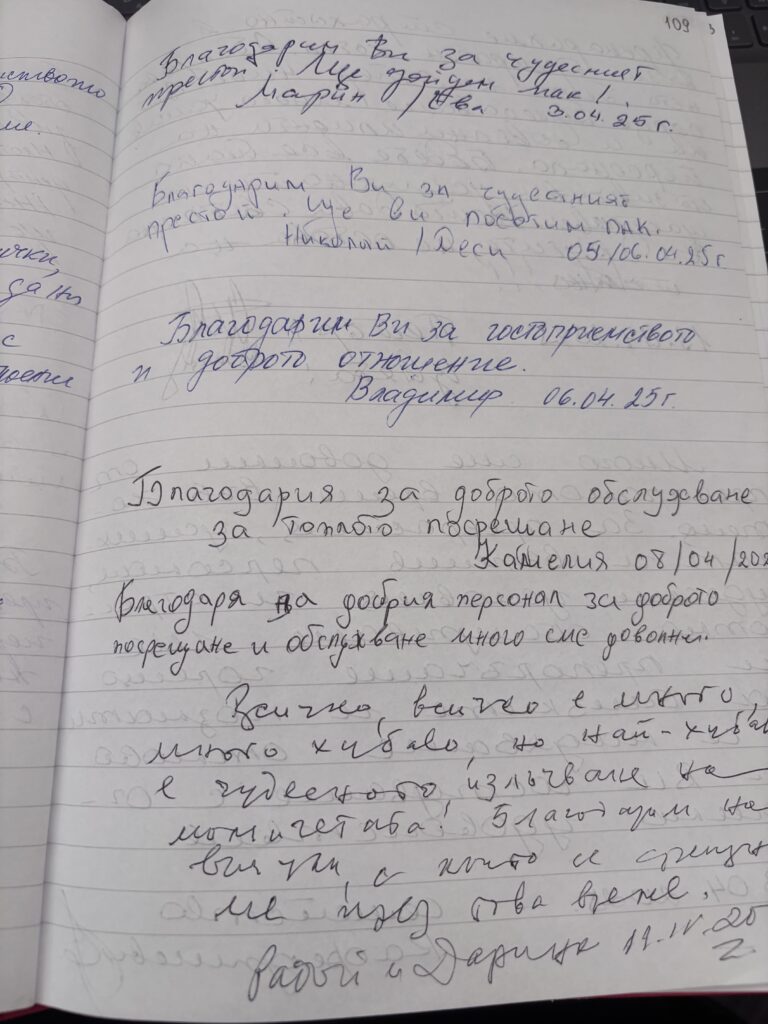 109
Благодарим Ви за чудесният
престой. Ще дойдем пак!
Марин / Ева 3.04.25г.
Благодарим Ви за чудесният
престой. Ще ви посетим пак.
Николай / Деси 05/06.04.25г
Благодарим Ви за гостоприемството
и доброто отношение.
Владимир 06.04.25г.
Благодария за доброто обслужване
за топлото посрещане
Камелия 08/04/202
Благодаря на добрия персонал за доброто
посрещане и обслужване много сме доволни.
Всичко, всичко е много,
много хубаво, но най-хубав
е чудесното излъчване на
момичетата! Благодарим на
всички, с които се срещн
ме през това време.
и Дарина 11.IV.20
2